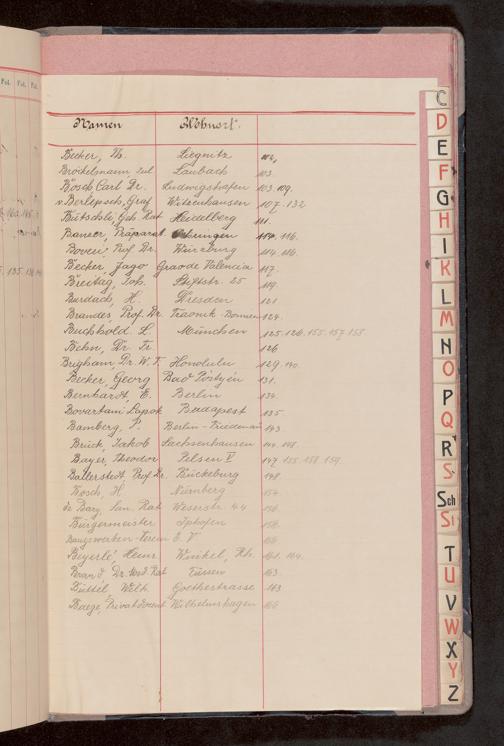 Fol. Fol. Fol.
Namen Wohnort.
Becker, Th. Liegnitz
Bröckelmann, Laubach 103.
Bösch Carl Dr. Ludwigshafen 103. 109.
v. Berlepsch, Graf Witzenhausen 107. 132
Bütschli, Geh. Rat Heidelberg 111.
Banzer, Präparat. 116.
Boveri, Prof. Dr. Würzburg 114. 116.
Becker, Jago Graode Valencia 117.
Breitag, Joh. Stiftstr. 25 119.
Burdach, H. Dresden 121
Brandes Prof. Dr. 124.
Buchhold L. München 125. 126. 155. 157. 158
Behn, Dr. Fr. 126
Brigham Dr. W. T. Honolulu 129. 140.
Becker, Georg Bad Pöstyén 131.
Bernhardt, E. Berlin 134.
Bovartani Lapok Budapest 135
Bamberg, P. Berlin-Friedenau 143
Brück, Jakob Sachsenhausen 144. 148.
Bayer, Theodor Pilsen V 147 155. 158. 159.
Ballerstedt, Prof. Dr. Bückeburg 148
Bosch, H. Nürnberg 154
de Bary, San. Rat Weserstr. 44 156.
Bürgermeister Iphofen
Baugewerken-Verein E. V.
Beyerlé Heinr. Winkel, Rh. 161. 164.
Brand, Dr. Med. Rat Füssen 163.
Büttel, Wilh. Goethestrasse 163
Baege, Privatdozent Wilhelmshagen 166
C
D
E
F
G
H
I
K
L
M
N
O
P
Q
R
S
Sch
St
T
U
V
W
X
Y
Z